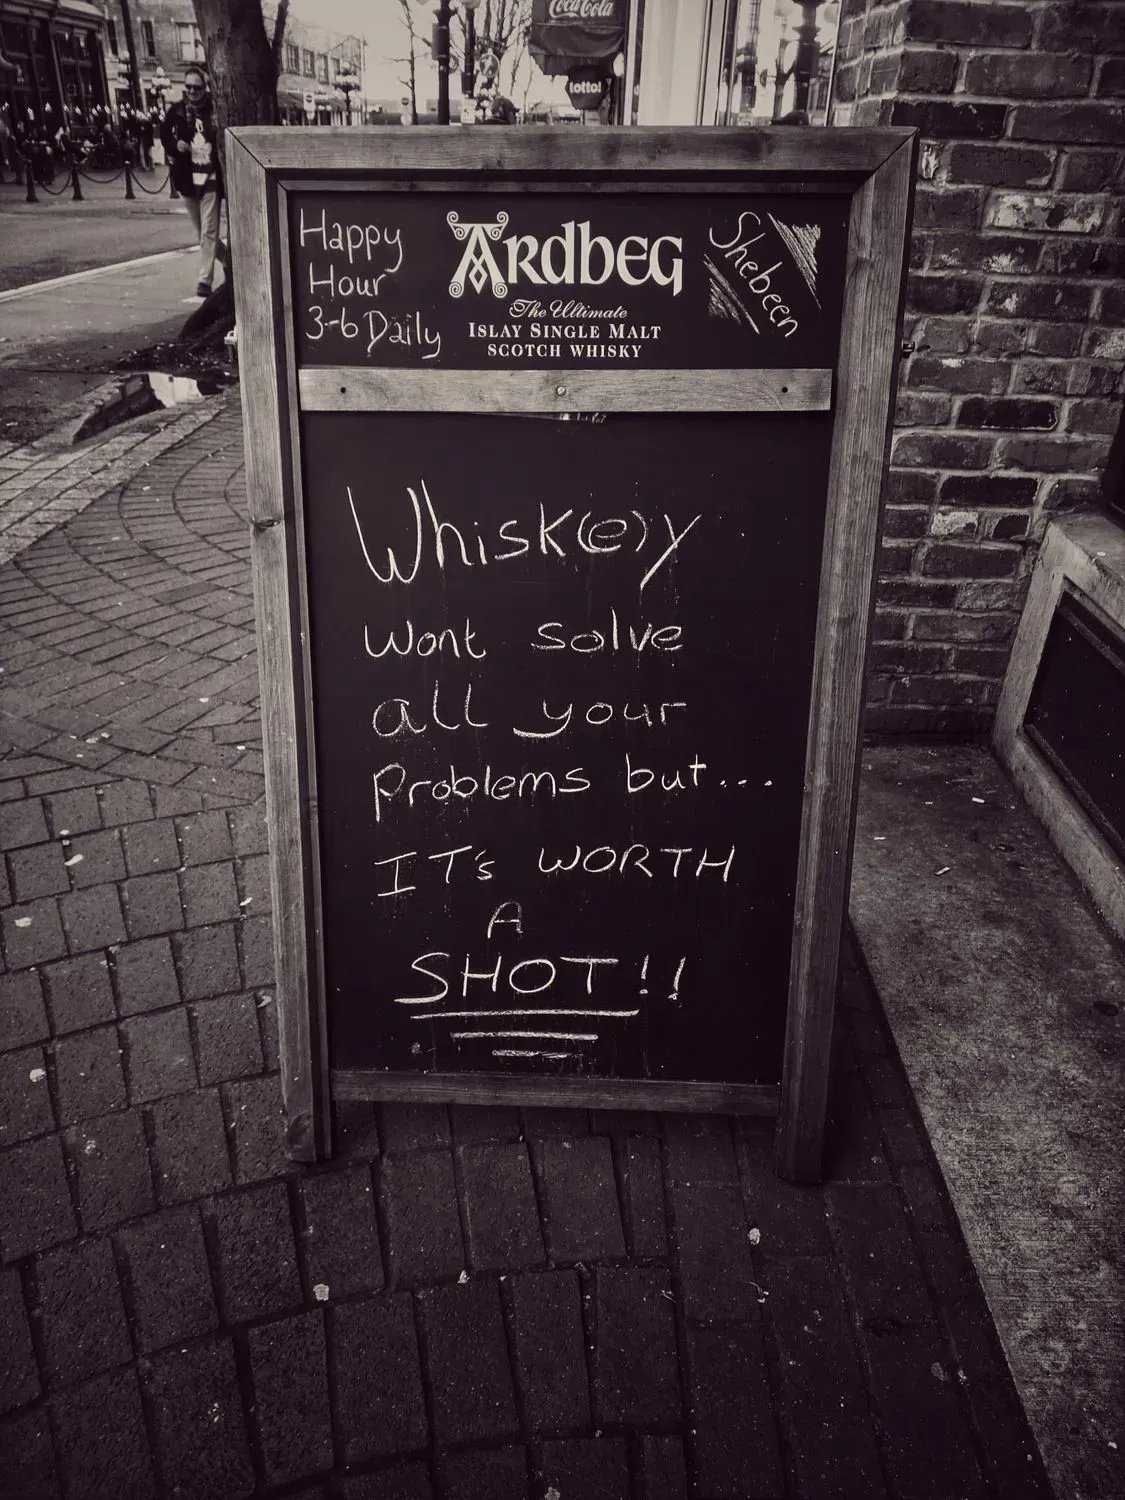 Coca-Cola
lotto!
Happy
Hour
3-6 Daily
ARDBEG
The Ultimate
ISLAY SINGLE MALT
SCOTCH WHISKY
Shebeen
Whisk(e)y
Wont solve
all your
Problems but...
IT's WORTH
A
SHOT!!